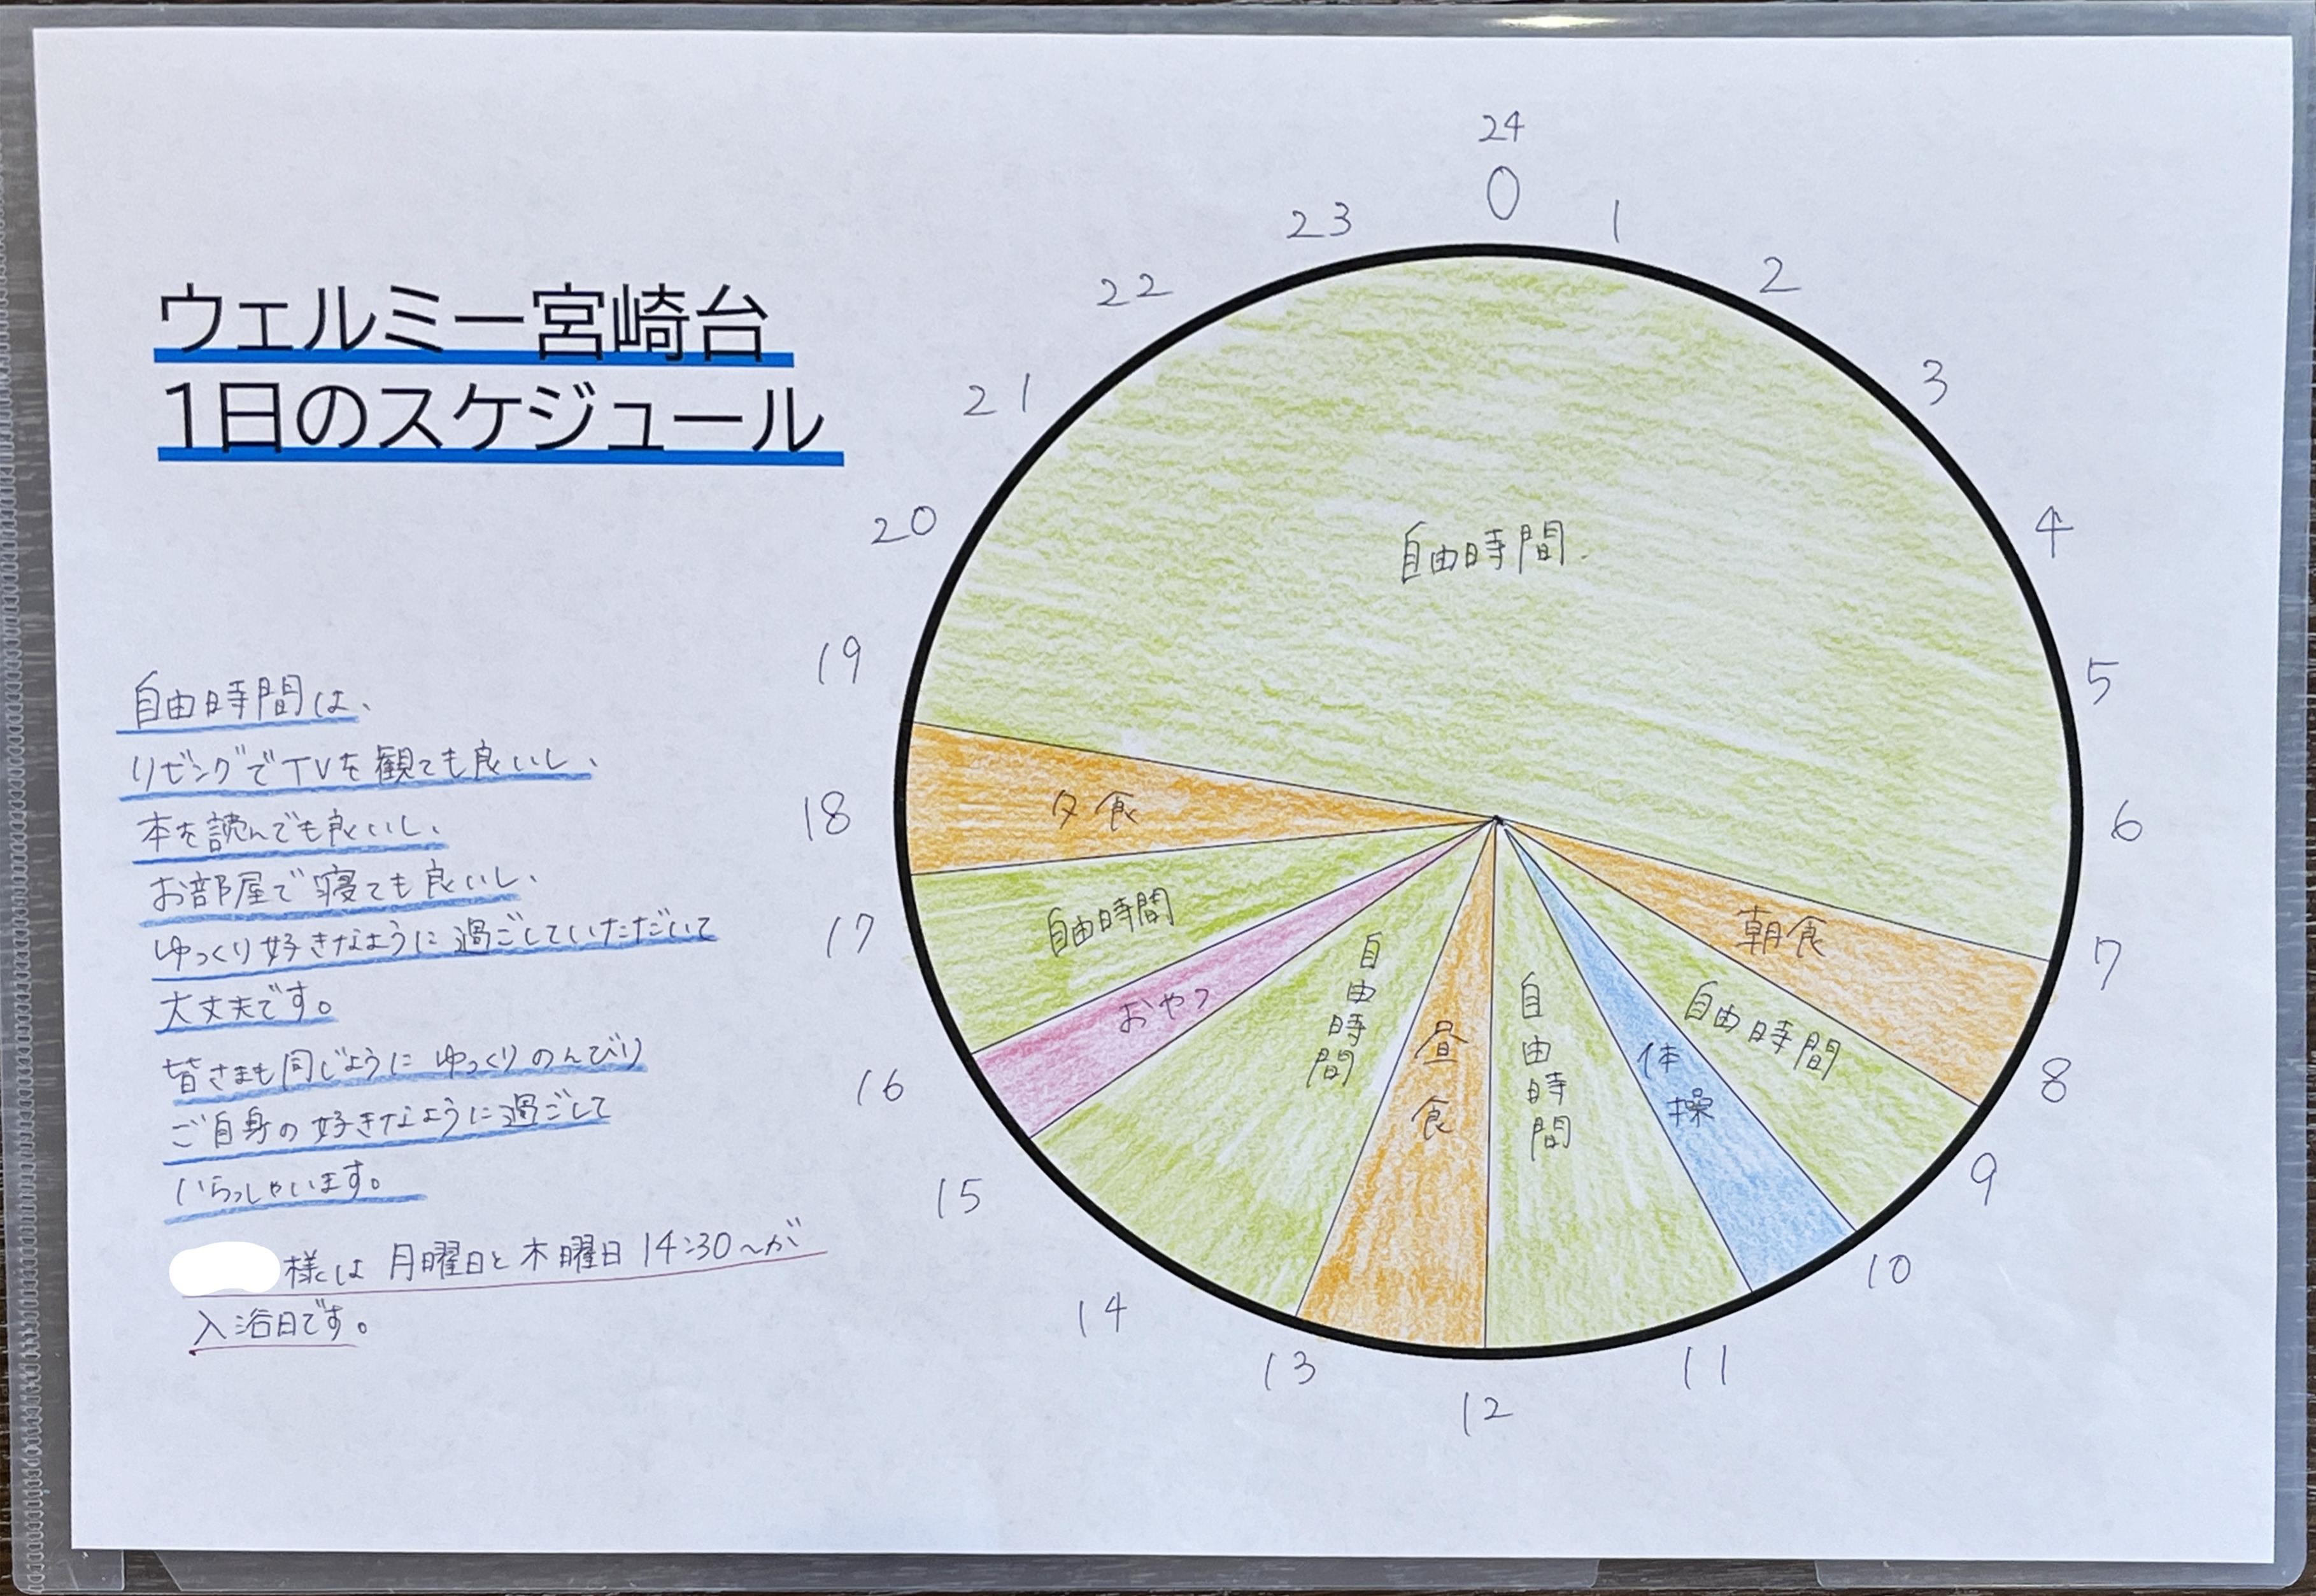 ウェルミー宮崎台
1日のスケジュール
自由時間は、
リビングでTVを観ても良いし、
本を読んでも良いし、
お部屋で寝ても良いし、
ゆっくり好きなように過ごしていただいて
大丈夫です。
皆さまも同じようにゆっくりのんびり
ご自身の好きなように過ごして
いらっしゃいます。
様は月曜日と木曜日14:30~が
入浴日です。
24
0
1
2
3
4
5
6
7
8
9
10
11
12
13
14
15
16
17
18
19
20
21
22
23
自由時間.
朝食
自由時間
体操
自由時間
昼食
自由時間
おやつ
自由時間
夕食